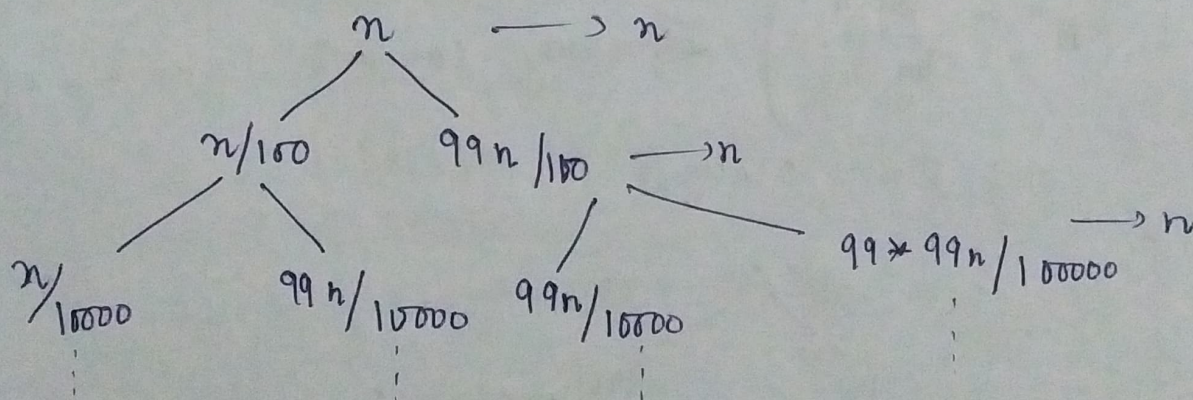 n → n
n/100 99n/100 → n
n/10000 99n/10000 99n/10000 99*99n/100000 → n